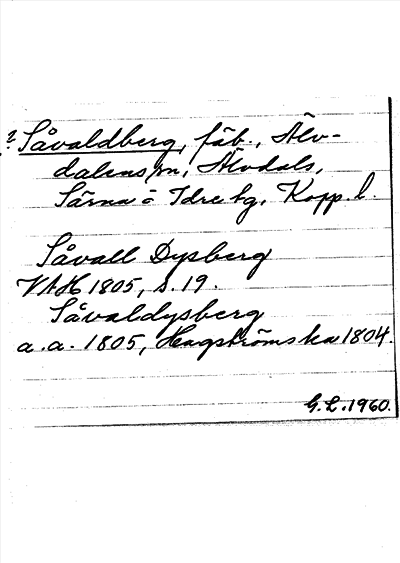 ? Såvaldberg, fäb., Älv-
dalens sn, Älvdals,
Särna o Idre tg, Kopp. l.
Såvall Dysberg
VAH 1805, s. 19.
Såvaldysberg
a.a. 1805, Hagströms ka 1804.
G.L. 1960.